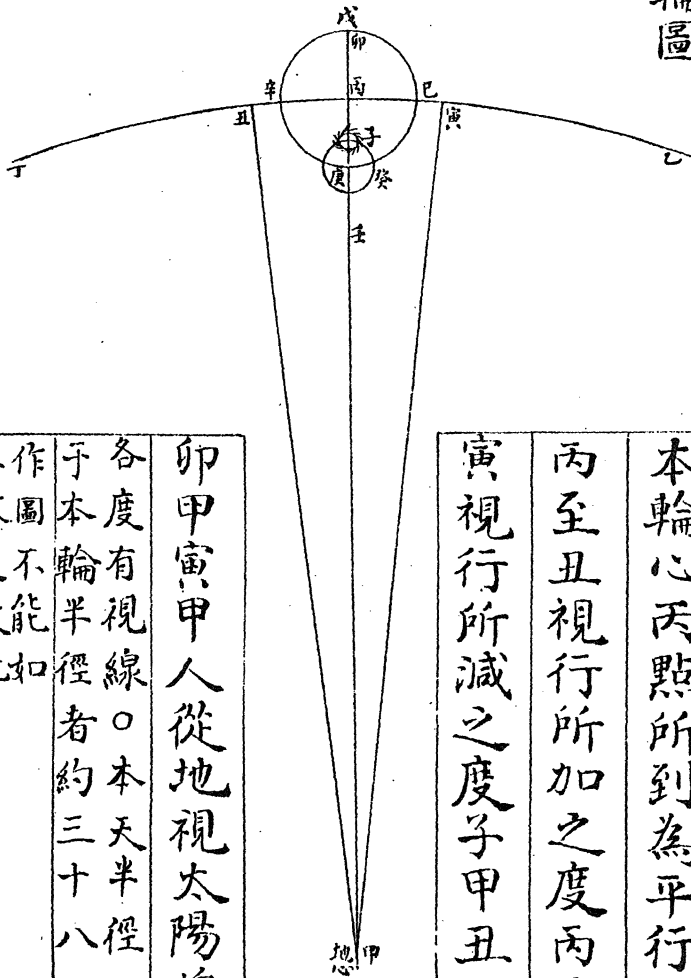 輪圖
戊
卯
辛
丙
巳
丑
寅
子
丁
乙
庚
癸
壬
本輪心丙點所到為平行
丙至丑視行所加之度丙
寅視行所減之度子甲丑
卯甲寅甲人從地視太陽
各度有視線○本天半徑
于本輪半徑者約三十八
作圖不能如
甲
地心